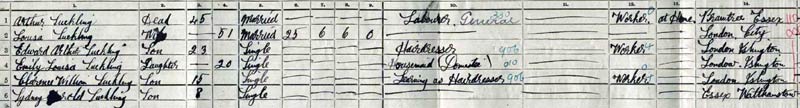 1. 2. 3. 4. 5. 6. 7. 8. 9. 10. 11. 12. 13. 14.
1 Arthur Suckling Head 45 Married Labourer, General Worker at Home Braintree Essex
2 Louisa Suckling Wife 51 Married 25 6 6 0 London City
3 Edward Arthur Suckling Son 23 Single Hairdresser 906 Worker London Islington
4 Emily Louisa Suckling Daughter 20 Single Housemaid (Domestic) Worker London Islington
5 Clarence William Suckling Son 15 Single Learning as Hairdresser 906 Worker London Islington
6 Sydney Suckling Son 8 Single Essex Walthamstow